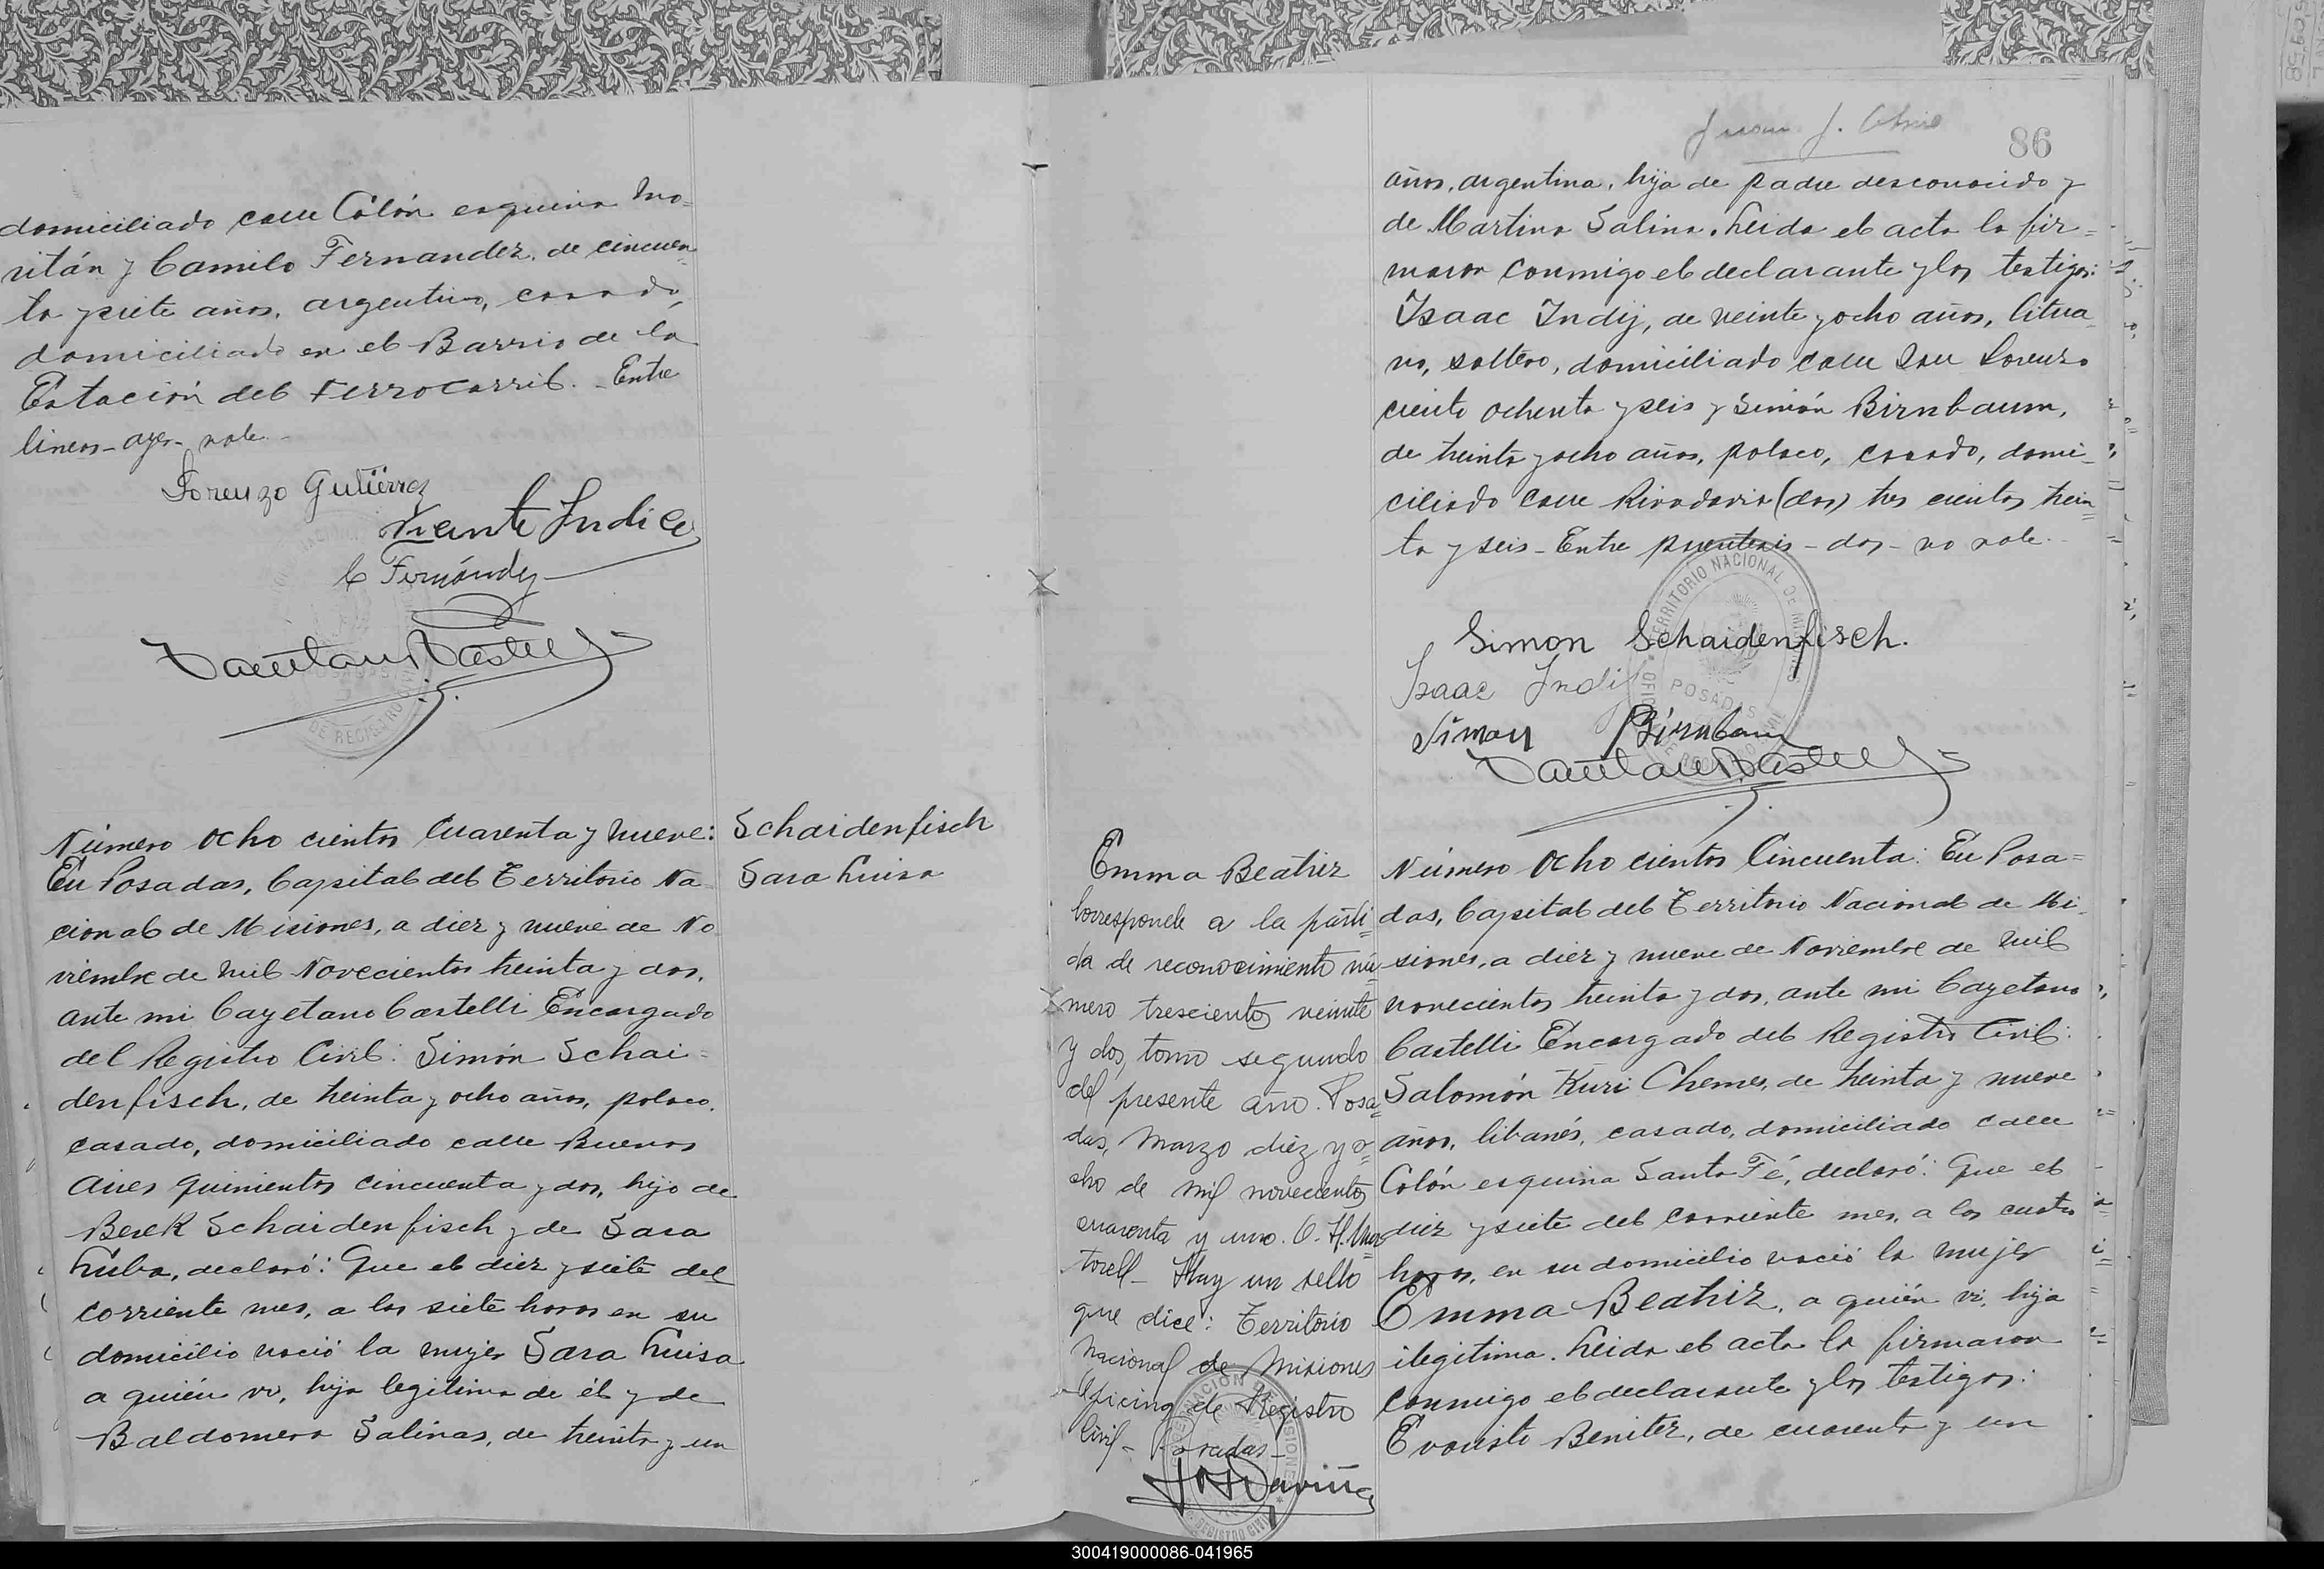 domiciliado calle Colón esquina Tro-
ritán y Camilo Fernandez, de cincuen
ta y siete años, argentino, casado,
domiciliado en el Barrio de la
Estación del Ferrocarril. - Entre
lineas - ayer - vale. -
Lorenzo Gutiérrez
Vicente Indice
C Fernández
Número Ocho cientos Cuarenta y nueve:
En Posadas, Capital del Territorio Na
cional de Misiones, a diez y nueve de No
viembre de mil Novecientos treinta y dos,
ante mi Cayetano Castelli Encargado
del Registro Civil: Simón Schai=
denfisch, de treinta y ocho años, polaco,
casado, domiciliado calle Buenos
Aires quinientos cincuenta y dos, hijo de
Berek Schaidenfisch y de Sara
Luba, declaró: Que el diez y siete del
corriente mes, a las siete horas en su
domicilio nació la mujer Sara Luisa
a quién vi, hija legitima de él y de
Baldomera Salinas, de treinta y un
Schaidenfisch
Sara Luisa
86
años, argentina, hija de padre desconocido y
de Martina Salina. Leida el acta la fir=
maron conmigo el declarante y los testigos:
Isaac Indij, de veinte y ocho años, Litua
no, soltero, domiciliado calle San Lorenzo
ciento ochenta y seis y Simón Birnbaum,
de treinta y ocho años, polaco, casado, domi-
ciliado calle Rivadavia (dos) tres cientos trein=
ta y seis - Entre parentesis - dos - no vale. -
TERRITORIO NACIONAL DE MISIONES
POSADAS
Simon Schaidenfisch.
Isaac Indij
Simon Birnbaum
Emma Beatriz
Corresponde a la parti=
da de reconocimiento nú=
mero trescientos veinte
y dos, tomo segundo
del presente año. Posa=
das, Marzo diez y o=
cho de mil novecientos
cuarenta y uno. O. H. Mar=
torell - Hay un sello
que dice: Territorio
Nacional de Misiones
Oficina de Registro
Civil - Posadas -
Número Ocho cientos Cincuenta: En Posa=
das, Capital del Territorio Nacional de Mi-
siones, a diez y nueve de Noviembre de mil
novecientos treinta y dos, ante mi Cayetano
Castelli Encargado del Registro Civil:
Salomón Kuri Chemes, de treinta y nueve
años, libanés, casado, domiciliado calle
Colón esquina Santa Fé, declaró: Que el
diez y siete del corriente mes, a las cuatro
horas, en su domicilio nació la mujer
Emma Beatriz, a quién vi, hija
ilegitima. Leida el acta la firmaron
conmigo el declarante y los testigos:
Evaristo Benitez, de cuarenta y un
300419000086-041965